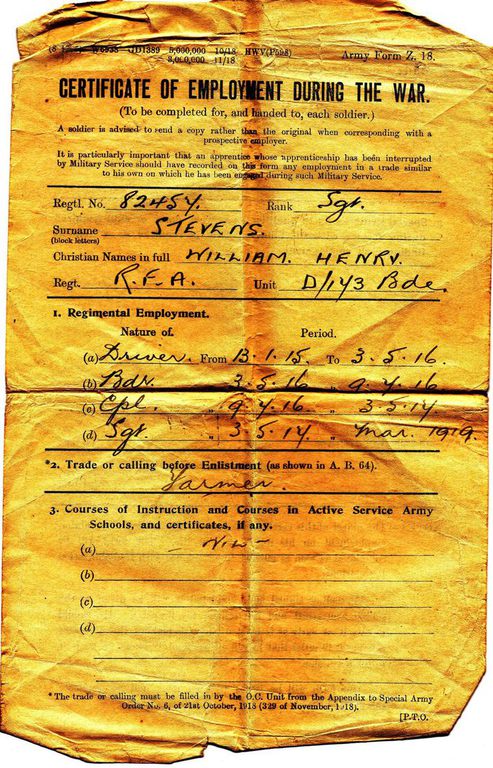 5,000,000 10/18 HWV(P698) Army Form Z. 18.
3,000,000 11/18
CERTIFICATE OF EMPLOYMENT DURING THE WAR.
(To be completed for, and handed to, each soldier.)
A soldier is advised to send a copy rather than the original when corresponding with a
prospective employer.
It is particularly important that an apprentice whose apprenticeship has been interrupted
by Military Service should have recorded on this form any employment in a trade similar
to his own on which he has been engaged during such Military Service.
Regtl. No. 82457. Rank Sgt.
Surname STEVENS.
(block letters)
Christian Names in full WILLIAM. HENRY.
Regt. R.F.A. Unit D/143 Bde.
1. Regimental Employment.
Nature of. Period.
(a) Driver. From 13.1.15. To 3.5.16.
(b) Bdr. " 3.5.16 " 9.7.16.
(c) Cpl. " 9.7.16. " 3.5.17.
(d) Sgt. " 3.5.17. " Mar. 1919.
*2. Trade or calling before Enlistment (as shown in A. B. 64).
Farmer.
3. Courses of Instruction and Courses in Active Service Army
Schools, and certificates, if any.
(a) - NIL -
(b)
(c)
(d)
* The trade or calling must be filled in by the O.C. Unit from the Appendix to Special Army
Order No. 6, of 21st October, 1918 (329 of November, 1918).
[P.T.O.